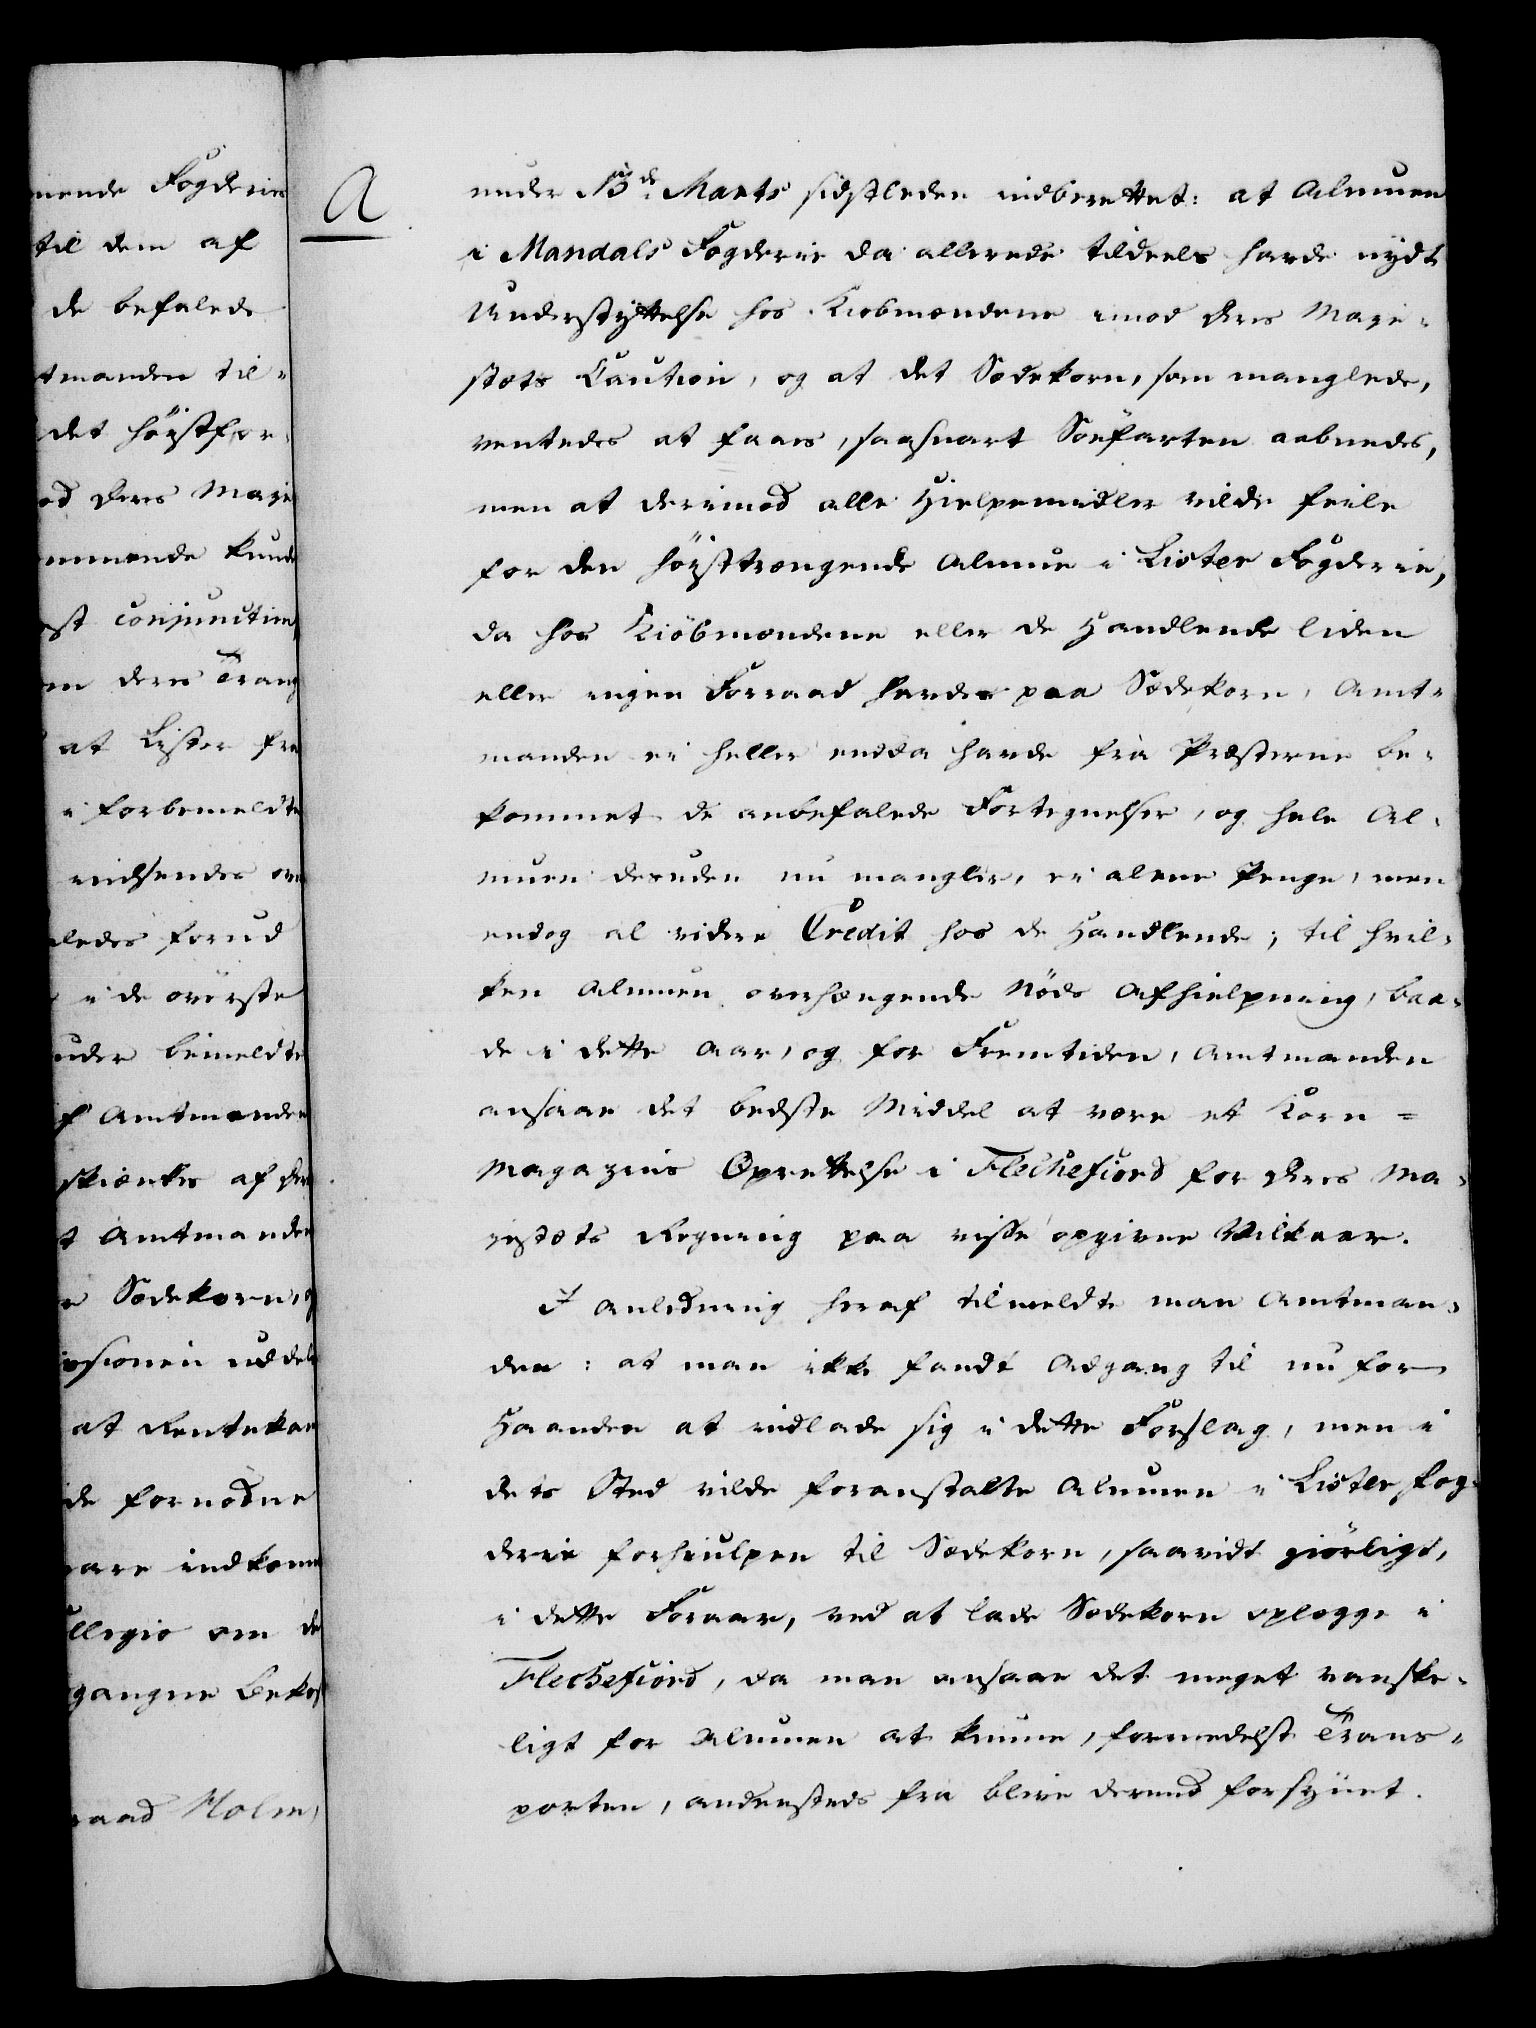 mende Fogderier
til dem af
de befalede
tmanden til-
det høystfor-
od Deres Maje
ommende kunde
st conjunction
en deres Trang
at Lister fra
i forbemeldte
indsendes om
ledes forud
i de øverste
under bemeldte
f Amtmanden
skiænkes af
t Amtmanden
e Sædekorn, og
isionen uddele
at Rentekam
de fornødne
vare indkomne
llegio om de
gangne Bekost
raad Holm,
a
under 15de Marts sidstleden indberettet: at Almuen
i Mandals Fogderie da allerede tildeels havde nydt
Understyttelse hos Kiøbmændene imod Deres Maje-
stæts Caution, og at det Sædekorn, som manglede,
ventedes at faaes, saasnart Søefarten aabnedes,
men at derimod alle Hielpemidler vilde feile
for den høysttrængende Almue i Lister Fogderie,
da hos Kiöbmændene eller de Handlende liden
eller ingen Forraad havdes paa Sædekorn, Amt-
manden ei heller endda havde fra Præsterne be-
kommet de anbefalede Fortegnelser, og hele Al-
muen desuden nu mangler, ei alene Penge, men
endog al videre Credit hos de Handlende; til hvil-
ken Almuen overhængende Nöds Afhielpning, baa-
de i dette Aar, og for Fremtiden, Amtmanden
ansaae det bedste Middel at være et Korn-
Magazins Oprettelse i Flechefiord for Deres Ma-
jestæts Regning paa visse opgivne Vilkaar.
I Anledning heraf tilmeldte man Amtman-
den: at man ikke fandt Adgang til nu for
Haanden at indlade sig i dette Forslag, men i
dets Sted vilde foranstalte Almuen i Lister Fog-
derie forhiulpen til Sædekorn, saavidt giörligt,
i dette Foraar, ved at lade Sædekorn oplægge i
Flechefiord, da man ansaae det meget vanske-
ligt for Almuen at kunne, formedelst Trans-
porten, andensteds fra blive derved forsynet.